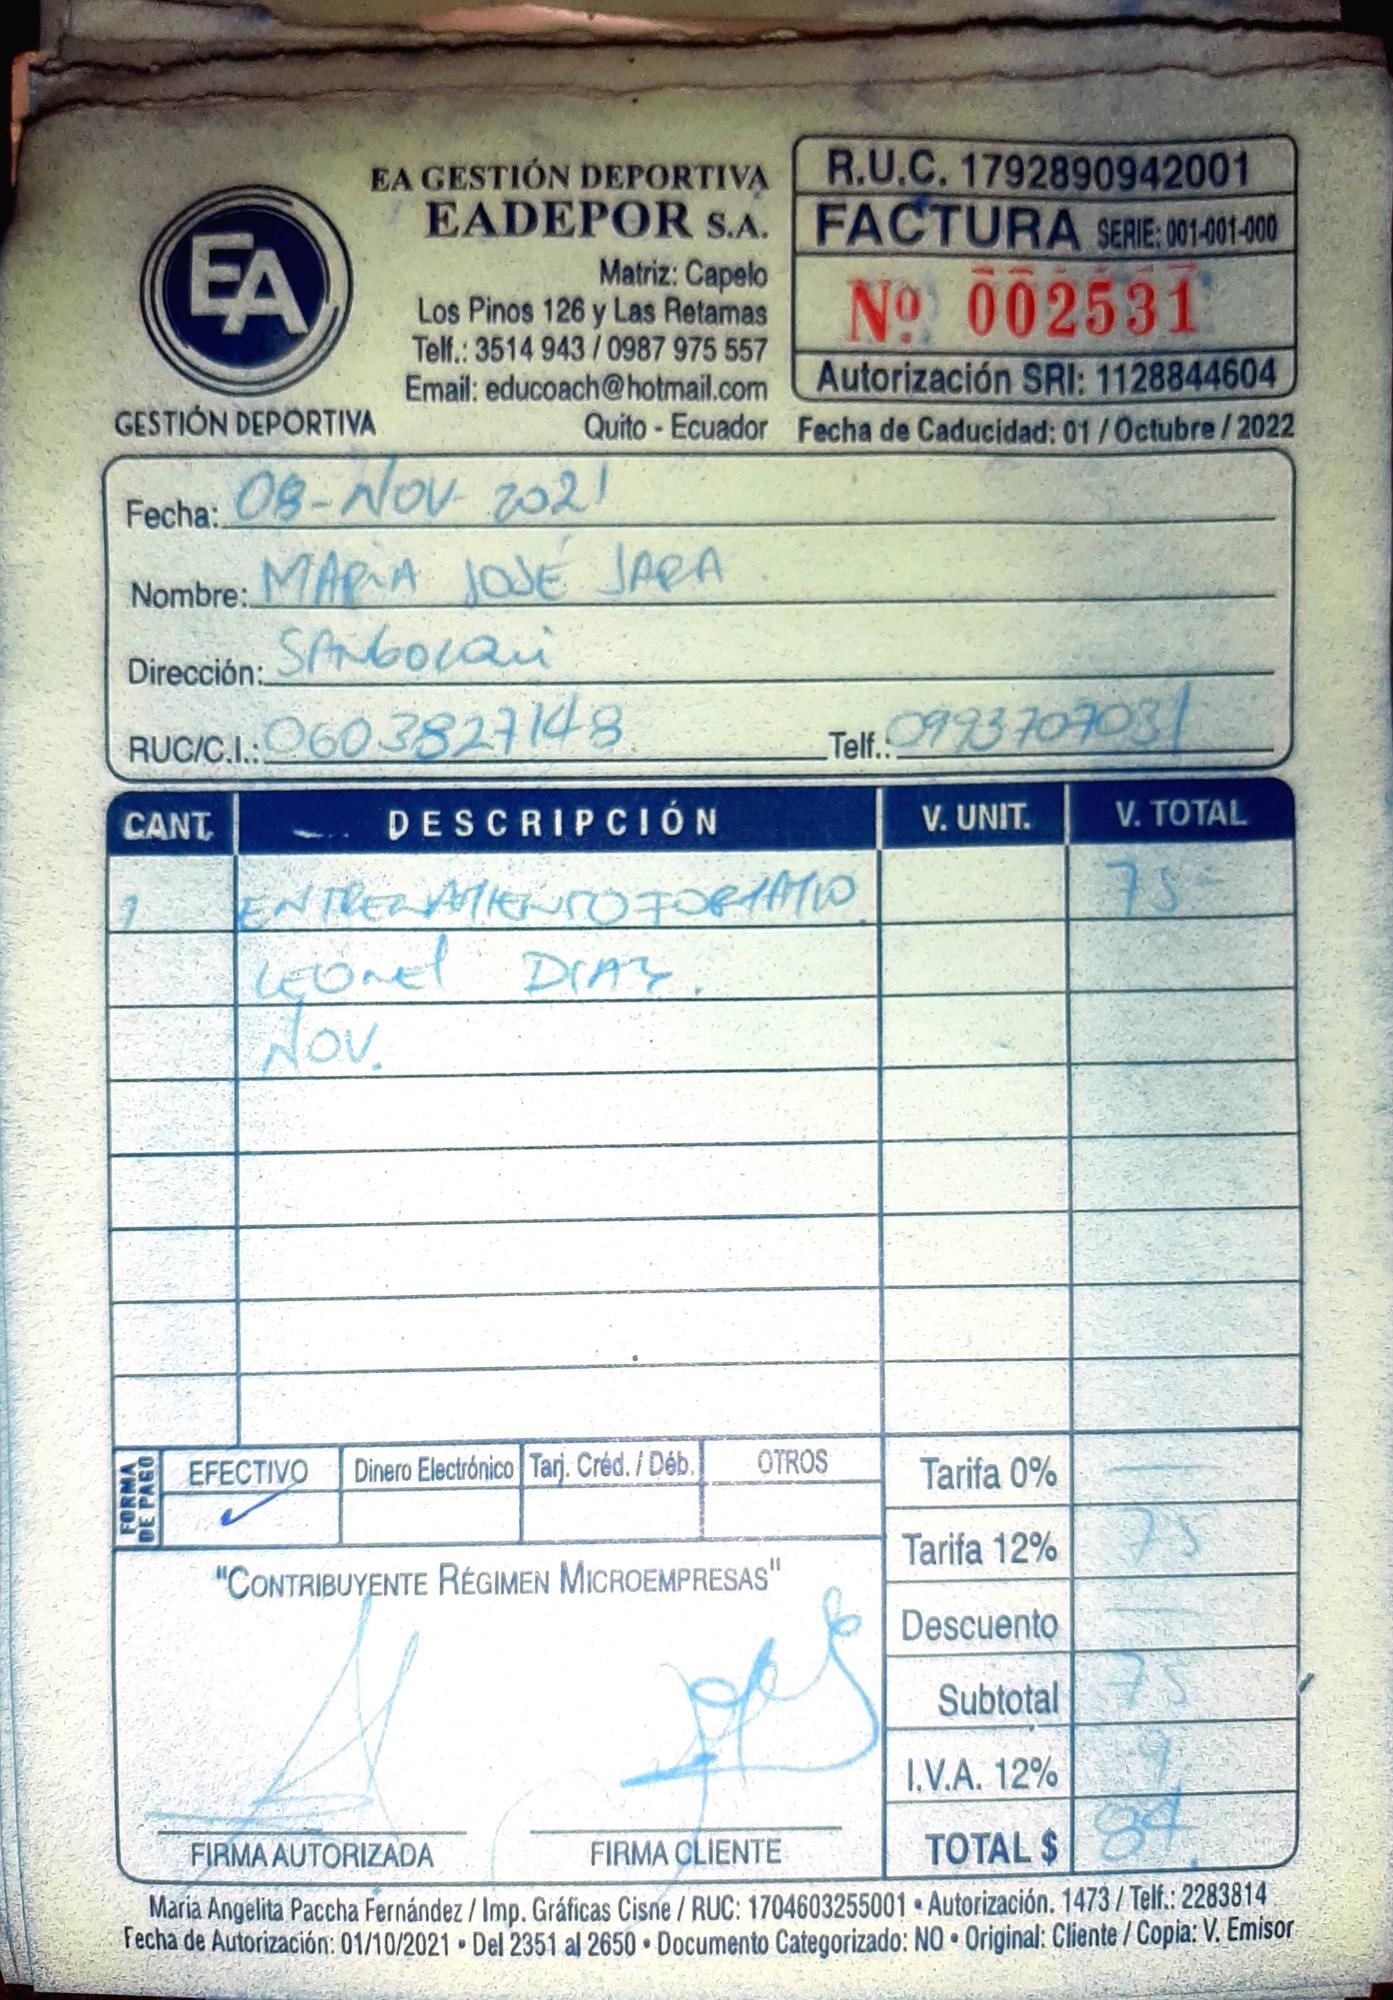 EA
GESTIÓN DEPORTIVA
EA GESTIÓN DEPORTIVA
EADEPOR S.A.
Matriz: Capelo
Los Pinos 126 y Las Retamas
Telf.: 3514 943 / 0987 975 557
Email: educoach@hotmail.com
Quito - Ecuador
R.U.C. 1792890942001
FACTURA SERIE: 001-001-000
Nº 002531
Autorización SRI: 1128844604
Fecha de Caducidad: 01 / Octubre / 2022
Fecha: 08-NOV-2021
Nombre: MARIA JOSÉ JARA
Dirección: SANGOLQUI
RUC/C.I.: 0603827148 Telf.: 0993707031
CANT. DESCRIPCIÓN V. UNIT. V. TOTAL
1 ENTRENAMIENTO FORMATIVO 75-
LEONEL DIAZ.
NOV.
FORMA DE PAGO EFECTIVO Dinero Electrónico Tarj. Créd. / Déb. OTROS
✓
Tarifa 0% —
Tarifa 12% 75
Descuento —
Subtotal 75
I.V.A. 12% 9
TOTAL $ 84.
"CONTRIBUYENTE RÉGIMEN MICROEMPRESAS"
FIRMA AUTORIZADA FIRMA CLIENTE
Maria Angelita Paccha Fernández / Imp. Gráficas Cisne / RUC: 1704603255001 • Autorización. 1473 / Telf.: 2283814
Fecha de Autorización: 01/10/2021 • Del 2351 al 2650 • Documento Categorizado: NO • Original: Cliente / Copia: V. Emisor